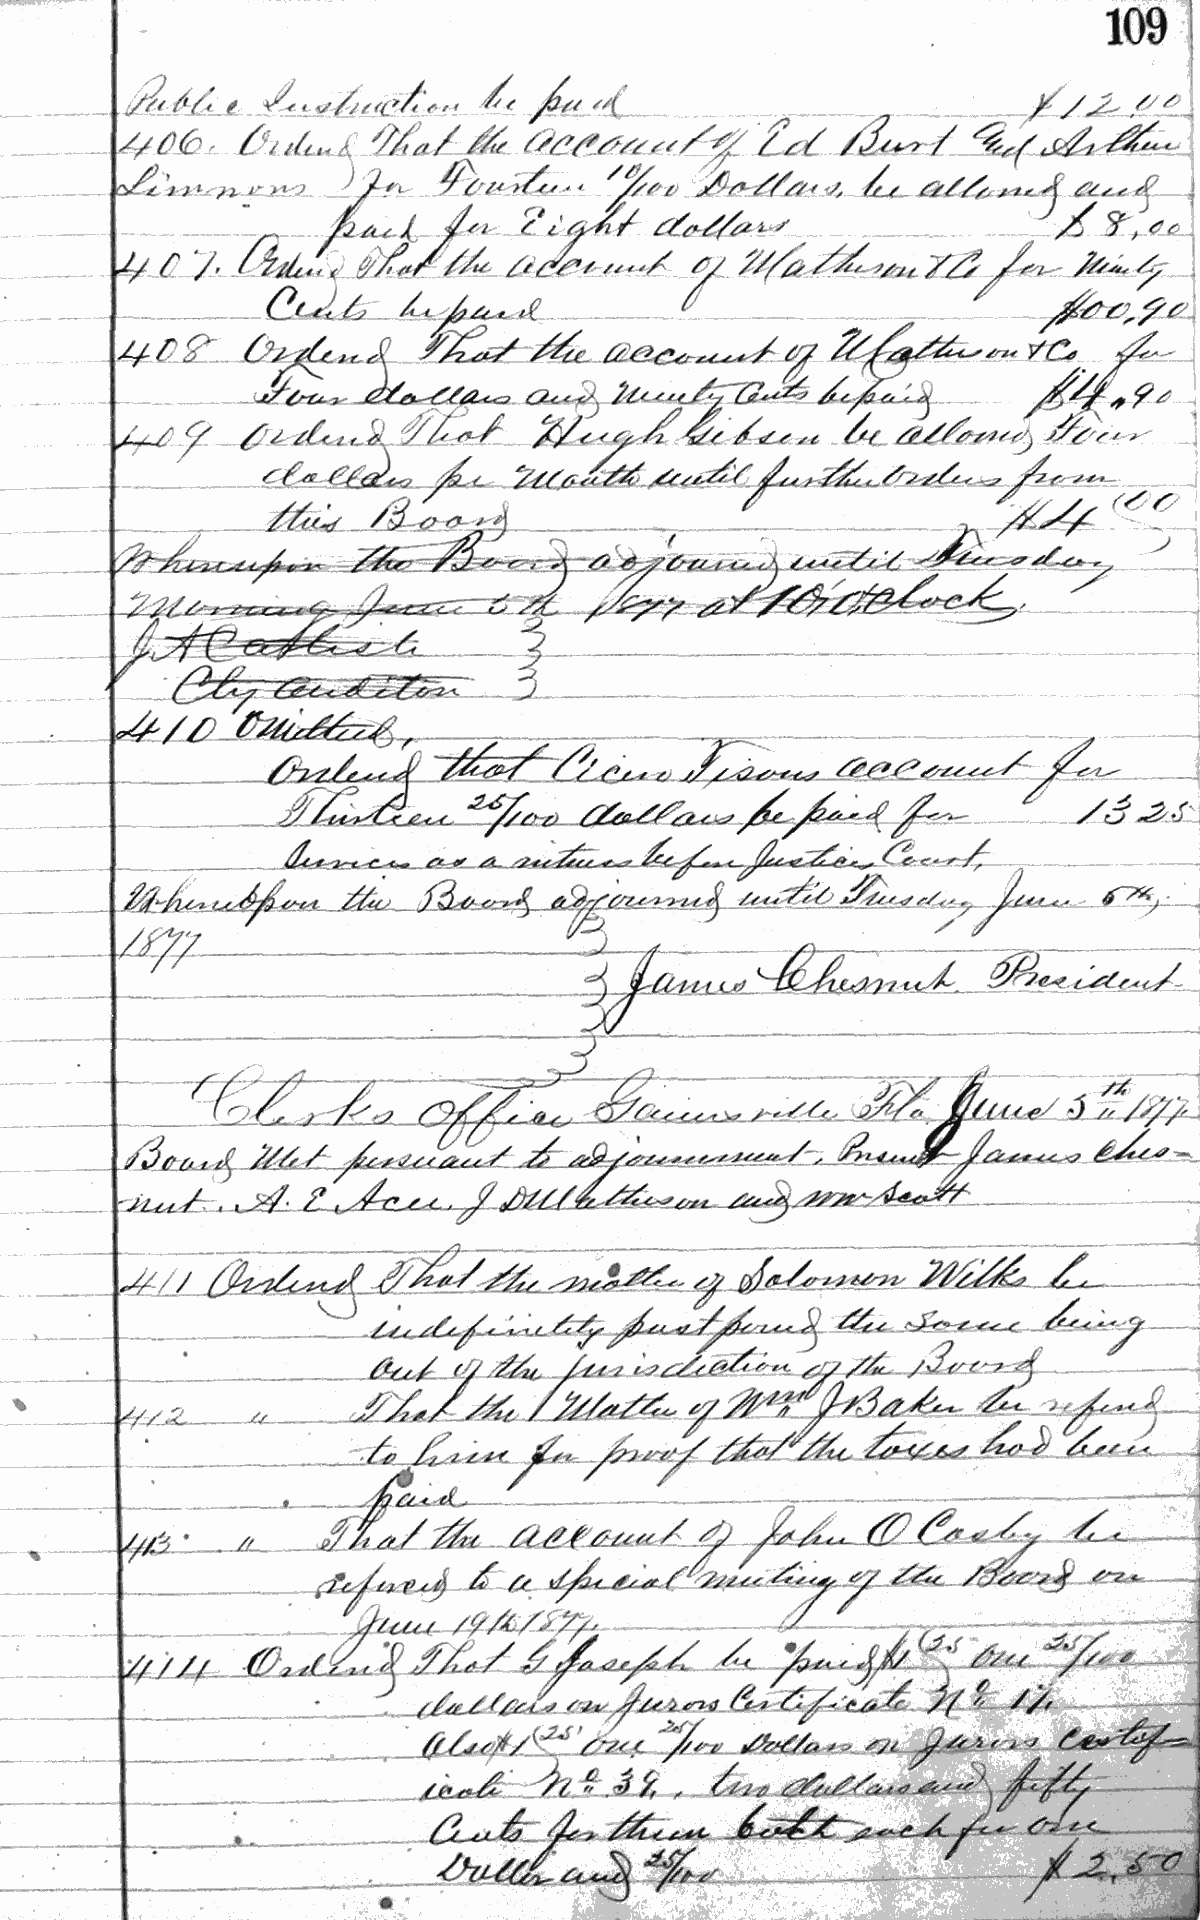 109
Public Instruction be paid $12.00
406. Ordered That the account of Ed Burt and Arthur
Simmons for Fourteen 10/100 Dollars, be allowed and
paid for Eight dollars $8,00
407. Ordered That the account of Matheson & Co for Ninety
Cents be paid $00,90
408 Ordered That the account of Matheson & Co for
Four dollars and Ninety Cents be paid $4,90
409 Ordered That Hugh Gibson be allowed Four
dollars per Month until further orders from
this Board $4 00
Whereupon the Board adjourned until Tuesday
Morning June 5th 1877 at 10 O'Clock.
J. A. Carlisle
Clg Auditor
410 Omitted,
Ordered that Cicero Tisons account for
Thirteen 25/100 dollars be paid for 13 25
Services as a witness before Justices Court,
Whereupon the Board adjourned until Tuesday June 5th,
1877
James Chesnut. President
Clerks office Gainesville Fla. June 5th 1877.
Board Met persuant to adjournment. Present James Ches=
nut. A. E. J D Matheson and Wm Scott
411 Ordered That the matter of Solomon Wilks be
indefinetely postponed the same being
out of the jurisdiction of the Board
412 " That the Matter of Wm J Baker be referred
to him for proof that the taxes had been
paid
413 " That the account of John O Casby be
refered to a special meeting of the Board on
June 19th 1877.
414 Ordered That G Joseph be paid $1 25 One 25/100
dollars on Jurors Certificate No.
Also $1 25 One 25/100 Dollars on Jurors Certif=
icate No. 39, two dollars and fifty
Cents for them both each for one
Dollar and 25/100 $2.50